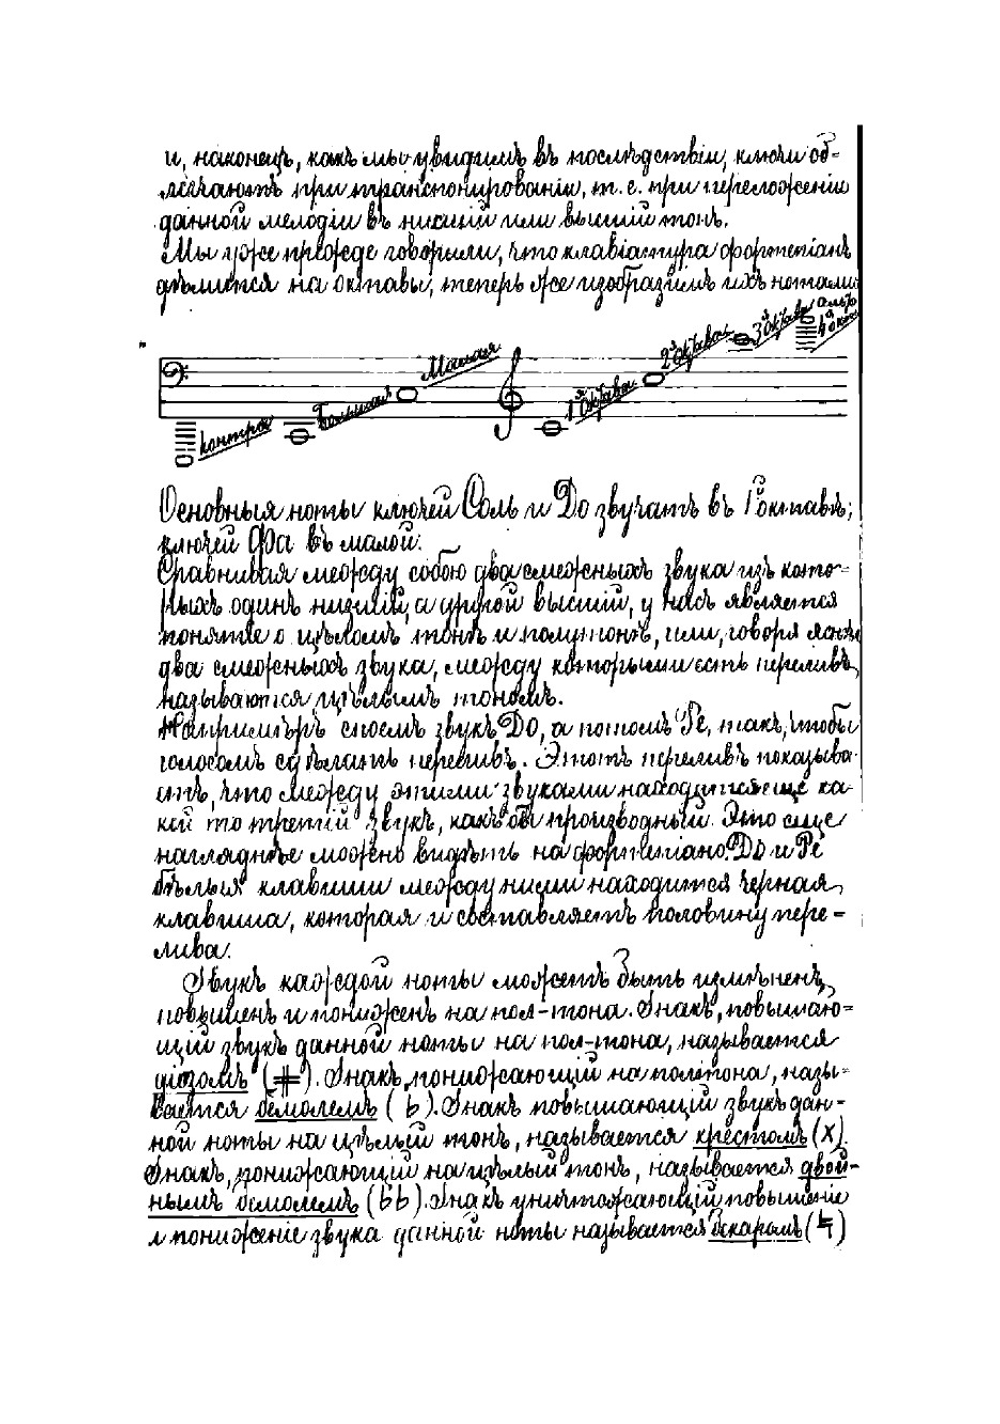 и, наконецъ, какъ мы увидимъ въ послѣдствіи, ключи об-
легчаютъ при транспонированіи, т. е. при переложеніи
данной мелодіи въ низшій или высшій тонъ.
Мы уже прежде говорили, что клавіатура фортепіанъ
дѣлится на октавы, теперь же изобразимъ ихъ нотами
контра Большая Малая 1я Октава 2я Октава 3я Октава 4я окт.
Основныя ноты ключей Соль и До звучатъ въ 1й октавѣ;
ключей Фа въ малой.
Сравнивая между собою два смежныхъ звука изъ кото-
рыхъ одинъ низшій, а другой высшій, у насъ является
понятіе о цѣломъ тонѣ и полутонѣ, или, говоря яснѣе
два смежныхъ звука, между которыми есть переливъ,
называются цѣлымъ тономъ.
Напримѣръ споемъ звукъ До, а потомъ Ре, такъ, чтобы
голосомъ сдѣлать переливъ. Этотъ переливъ показыва-
етъ, что между этими звуками находится еще ка-
кой то третій звукъ, какъ бы производный. Это еще
нагляднѣе можно видѣть на фортепіано. До и Ре
бѣлыя клавиши между ними находится черная
клавиша, которая и составляетъ половину пере-
лива.
Звукъ каждой ноты можетъ быть измѣненъ,
повышенъ и пониженъ на пол-тона. Знакъ, повышаю-
щій звукъ данной ноты на пол-тона, называется
діэзомъ (#). Знакъ, понижающій на полтона, назы-
вается бемолемъ (b). Знакъ повышающій звукъ дан-
ной ноты на цѣлый тонъ, называется крестомъ (x).
Знакъ, понижающій на цѣлый тонъ, называется двой-
нымъ бемолемъ (bb). Знакъ уничтожающій повышеніе
и пониженіе звука данной ноты называется бекаромъ (♮)